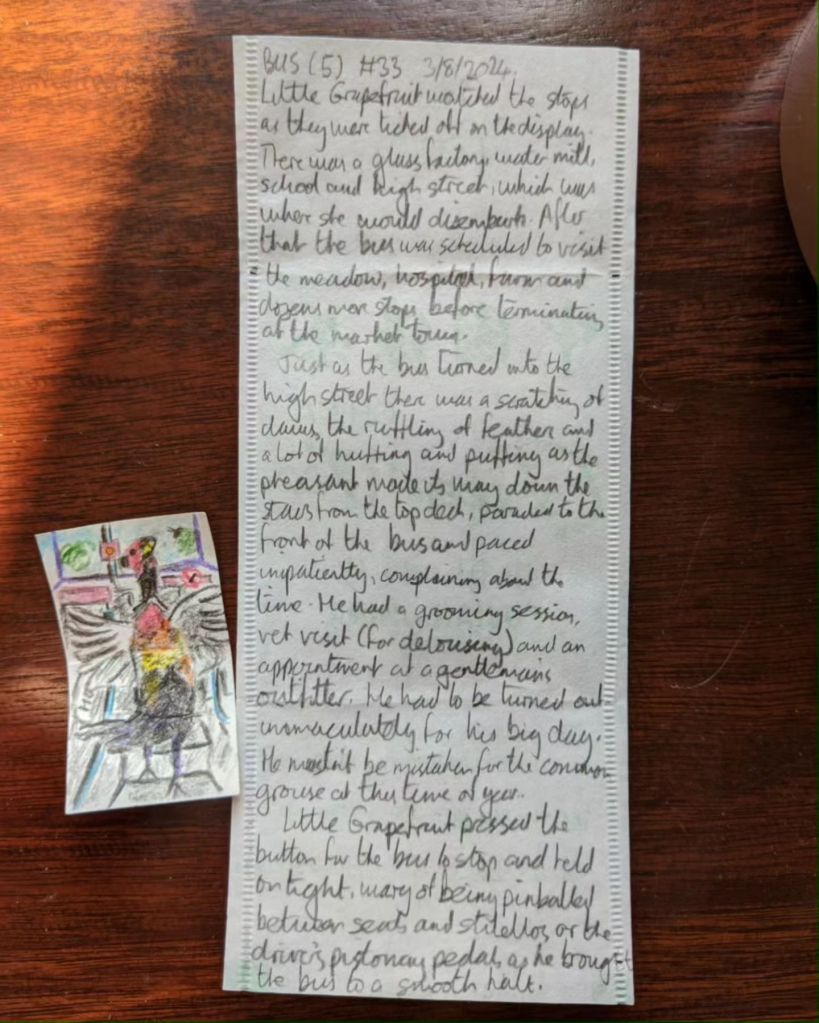 BUS (5) #33 3/8/2024.
Little Grapefruit watched the stops
as they were ticked off on the display.
There was a glass factory, water mill,
school and high street, which was
where she would disembark. After
that the bus was scheduled to visit
the meadow, hospital, farm and
dozens more stops before terminating
at the market town.
Just as the bus turned into the
high street there was a scratching of
claws, the ruffling of feather and
a lot of huffing and puffing as the
pheasant made its way down the
stairs from the top deck, paraded to the
front of the bus and paced
impatiently, complaining about the
time. He had a grooming session,
vet visit (for delousing) and an
appointment at a gentleman's
outfitter. He had to be turned out
immaculately for his big day.
He mustn't be mistaken for the common
grouse at this time of year.
Little Grapefruit pressed the
button for the bus to stop and held
on tight, wary of being pinballed
between seats and stilettos or the
driver's pistoning pedals as he brought
the bus to a smooth halt.